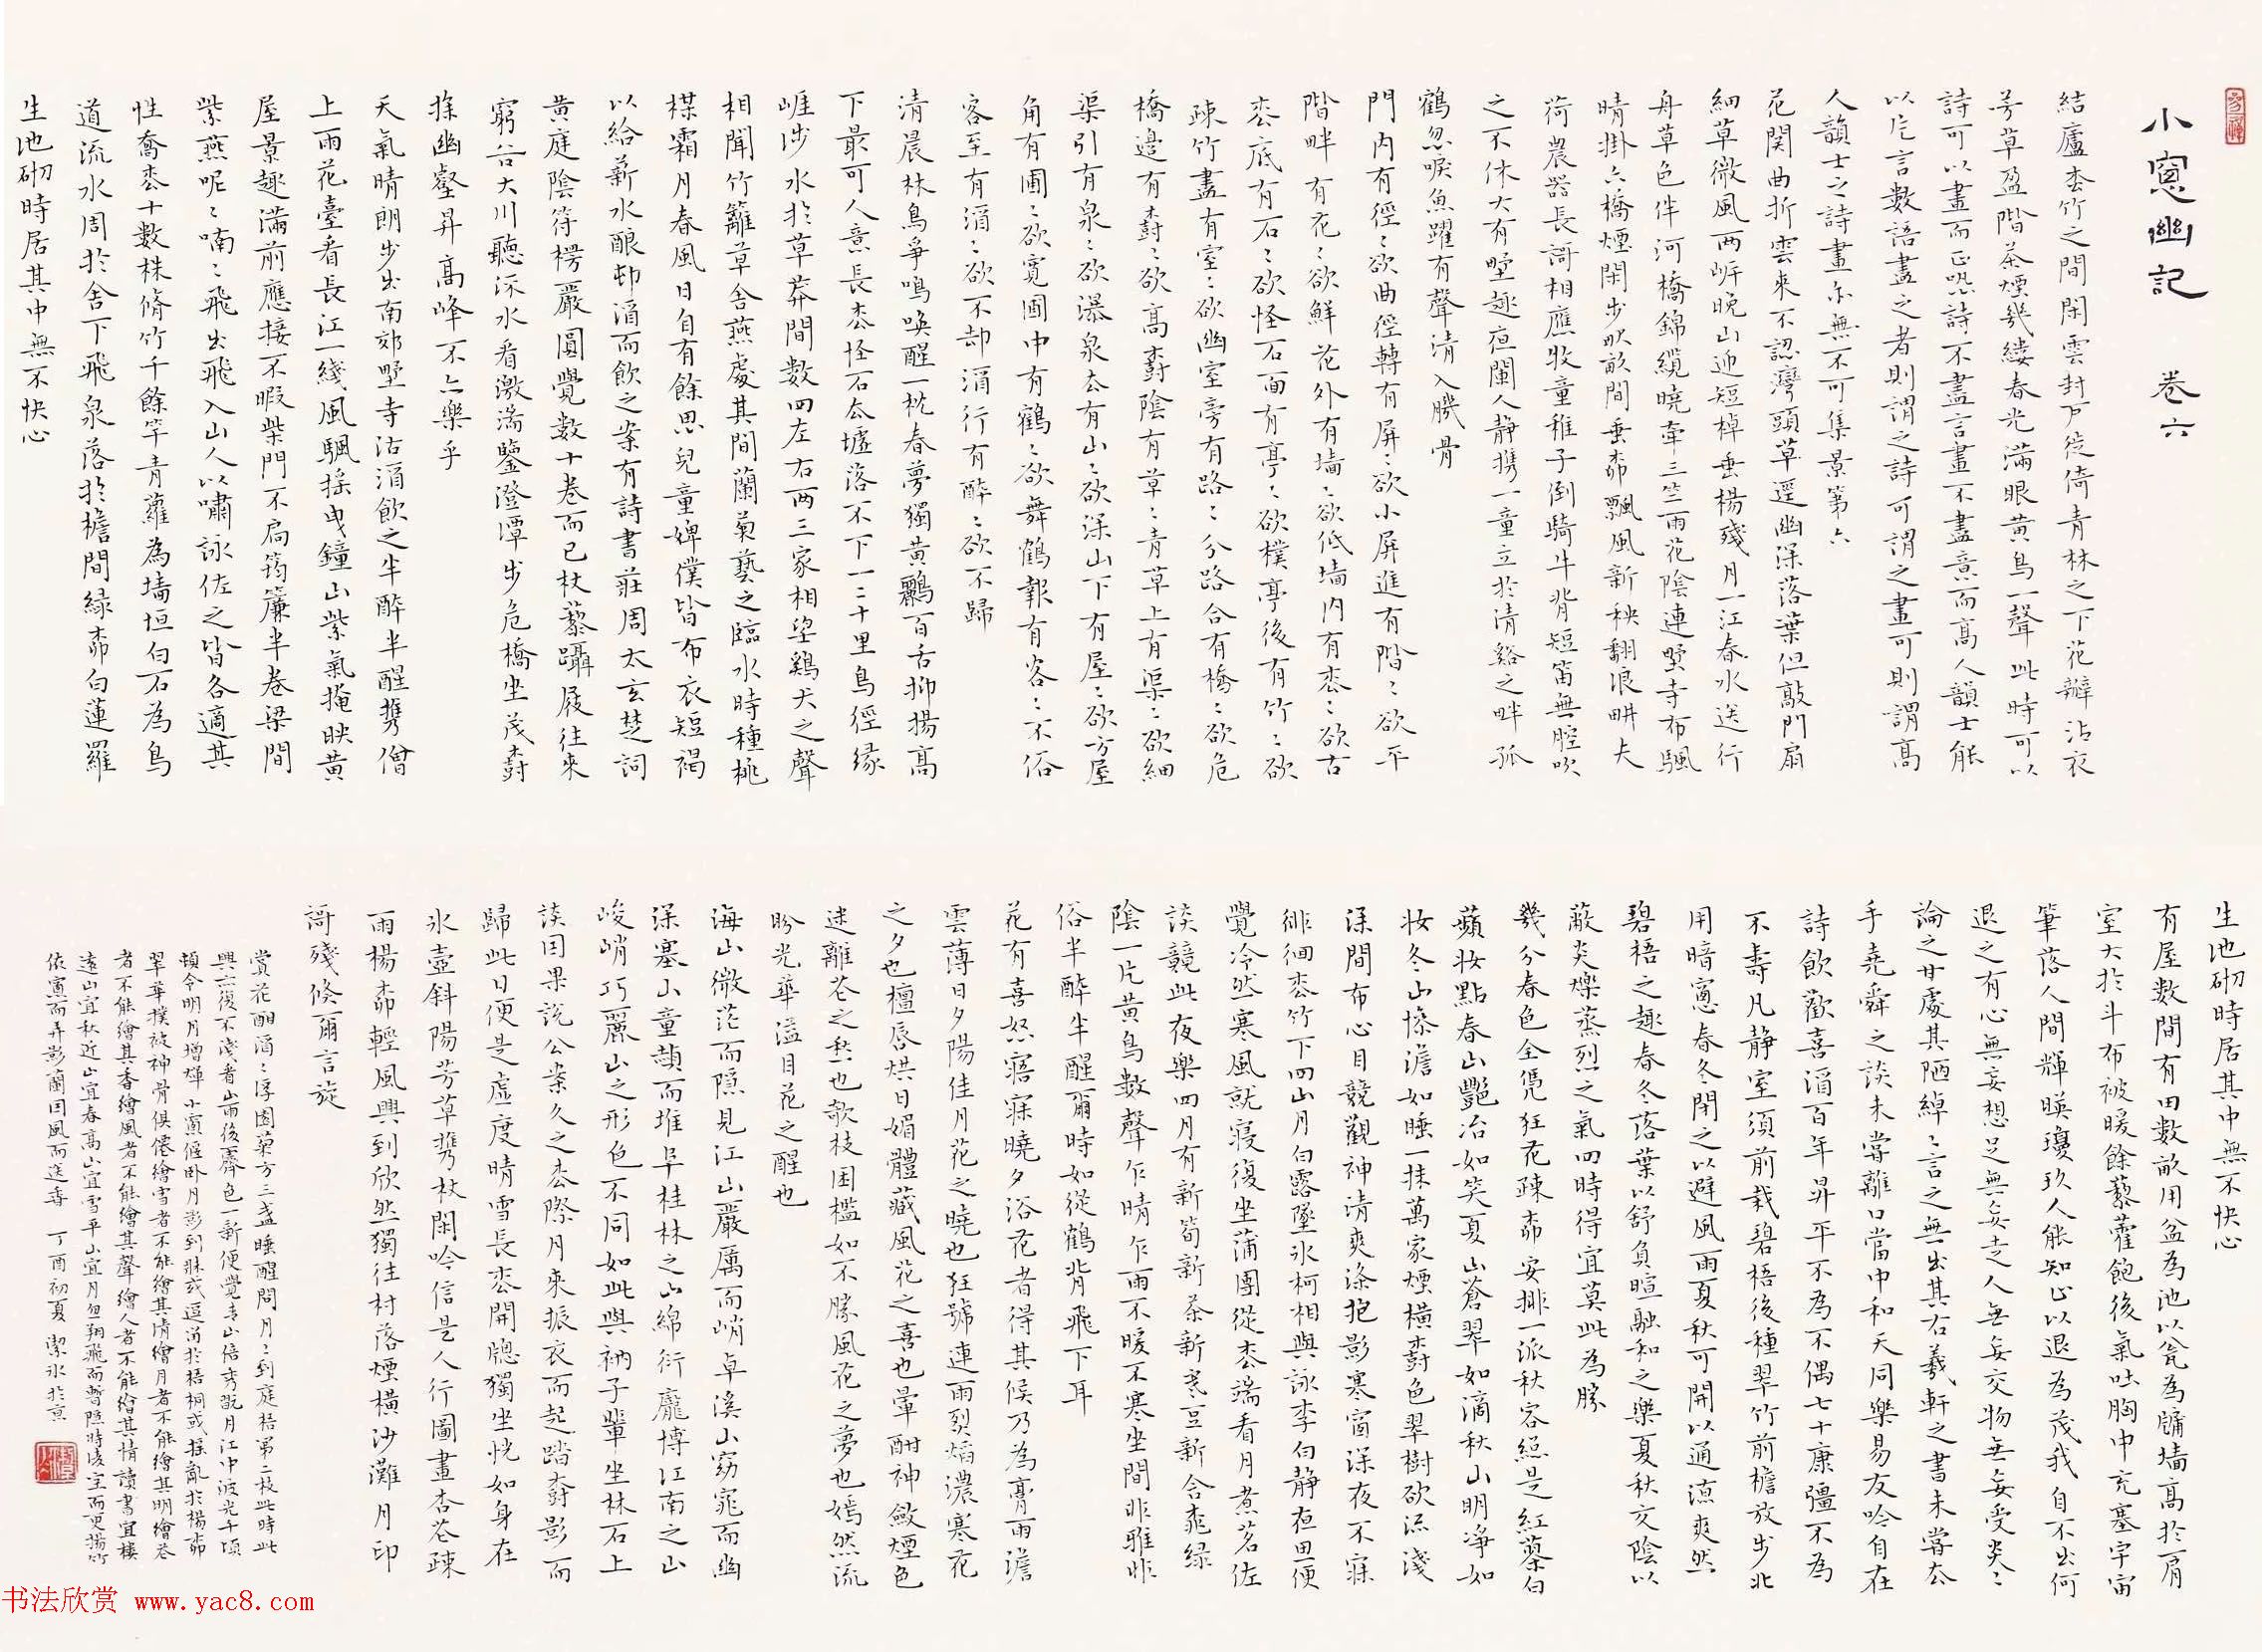 小窻幽記 卷六
結廬松竹之間閑雲封戶徙倚青林之下花瓣沾衣
芳草盈階茶煙幾縷春光滿眼黃鳥一聲此時可以
詩可以畫而正恐詩不盡言畫不盡意而高人韻士能
以片言數語盡之者則謂之詩可謂之畫可則謂高
人韻士之詩畫亦無不可集景第六
花関曲折雲來不認灣頭草逕幽深落葉但敲門扇
細草微風两岸晚山迎短棹垂楊殘月一江春水送行
舟草色伴河橋錦纜曉牽三竺雨花陰連野寺布颿
晴掛六橋煙閑步畎畝間垂桺飄風新秧翻浪畊夫
荷農器長謌相應牧童稚子倒騎牛背短笛無腔吹
之不休大有野趣夜闌人静携一童立於清谿之畔孤
鶴忽唳魚躍有聲清入肌骨
門内有徑〻欲曲徑轉有屏〻欲小屏進有階〻欲平
階畔有花〻欲鮮花外有墙〻欲低墙内有松〻欲古
松底有石〻欲怪石面有亭〻欲樸亭後有竹〻欲
疎竹盡有室〻欲幽室旁有路〻分路合有橋〻欲危
橋邊有樹〻欲高樹陰有草〻青草上有渠〻欲細
渠引有泉〻欲瀑泉去有山〻欲深山下有屋〻欲方屋
角有圃〻欲寛圃中有鶴〻欲舞鶴報有客〻不俗
客至有酒〻欲不却酒行有醉〻欲不歸
清晨林鳥爭鳴喚醒一枕春夢獨黄鸝百舌抑揚高
下最可人意長松怪石去墟落不下一二十里鳥徑緣
崖涉水於草莽間數四左右两三家相望鷄犬之聲
相聞竹籬草舍燕處其間蘭菊藝之臨水時種桃
楳霜月春風日自有餘思兒童婢僕皆布衣短褐
以給薪水釀邨酒而飲之案有詩書莊周太玄楚詞
黄庭陰符楞嚴圓覺數十卷而已杖藜躡屐往來
窮谷大川聽流水看激湍鑒澄潭步危橋坐茂樹
探幽壑昇高峰不亦樂乎
天氣晴朗步出南郊野寺沽酒飲之半醉半醒携僧
上雨花臺看長江一綫風颿揺曳鐘山紫氣掩映黄
屋景趣滿前應接不暇柴門不扃筠簾半卷梁間
紫燕呢〻喃〻飛出飛入山人以嘯詠佐之皆各適其
性喬松十數株脩竹千餘竿青蘿為墻垣白石為鳥
道流水周於舍下飛泉落於檐間緑桺白蓮羅
生池砌時居其中無不快心
生池砌時居其中無不快心
有屋數間有田數畝用盆為池以瓮為牗墻高於肩
室大於斗布被暖餘藜藿飽後氣吐胸中充塞宇宙
筆落人間輝暎瓊玖人能知止以退為茂我自不出何
退之有心無妄想足無妄走人無妄交物無妄受炎〻
論之甘處其陋綽〻言之無出其右羲軒之書未嘗去
手堯舜之談未嘗離口當中和天同樂易友吟自在
詩飲歡喜酒百年昇平不為不偶七十康彊不為
不壽凡静室須前栽碧梧後種翠竹前檐放步北
用暗窻春冬閉之以避風雨夏秋可開以通凉爽然
碧梧之趣春冬落葉以舒負暄融和之樂夏秋交陰以
蔽炎爍蒸烈之氣四時得宜莫此為勝
幾分春色全凭狂花疎桺安排一派秋容緫是紅蓼白
蘋妝點春山艷冶如笑夏山蒼翠如滴秋山明净如
妝冬山慘澹如睡一抹萬家煙橫樹色翠樹欲流淺
深間布心目競觀神清爽滌抱影寒窗深夜不寐
徘徊松竹下四山月白露墜冰柯相與詠李白静夜思便
覺冷然寒風就寝復坐蒲團從松端看月煮茗佐
談竟此夜樂四月有新筍新茶新寒豆新含桃緑
陰一片黄鳥數聲乍晴乍雨不暖不寒坐間非雅非
俗半醉半醒爾時如從鶴背飛下耳
花有喜怒寤寐曉夕浴花者得其候乃為膏雨澹
雲薄日夕陽佳月花之曉也狂號連雨烈熖濃寒花
之夕也檀唇烘日媚體藏風花之喜也暈酣神斂煙色
迷離花之愁也欹枝困檻如不勝風花之夢也嫣然流
盼光華溢目花之醒也
海山微茫而隱見江山嚴厲而峭卓溪山窈窕而幽
深塞山童赬而堆阜桂林之山綿衍龐博江南之山
峻峭巧麗山之形色不同如此與衲子輩坐林石上
談因果說公案久之松際月來振衣而起踏樹影而
歸此日便是虛度晴雪長松開牕獨坐恍如身在
氷壺斜陽芳草携杖閑吟信是人行圖畫杏花疎
雨楊桺輕風興到欣然獨往村落煙橫沙灘月印
謌殘倏爾言旋
賞花酣酒〻浮園菊方三盞睡醒問月〻到庭梧第二枝此時此
興亦復不淺看山雨後霽色一新便覺青山倍秀翫月江中波光千頃
頓令明月增煇小窻偃卧月影到牀或逗遛於梧桐或揺亂於楊桺
翠華撲被神骨俱僊繪雪者不能繪其清繪月者不能繪其明繪花
者不能繪其香繪風者不能繪其聲繪人者不能繪其情讀書宜樓
遠山宜秋近山宜春高山宜雪平山宜月
依窻而弄影蘭因風而送香 丁酉初夏 潔冰於京
书法欣赏 www.yac8.com